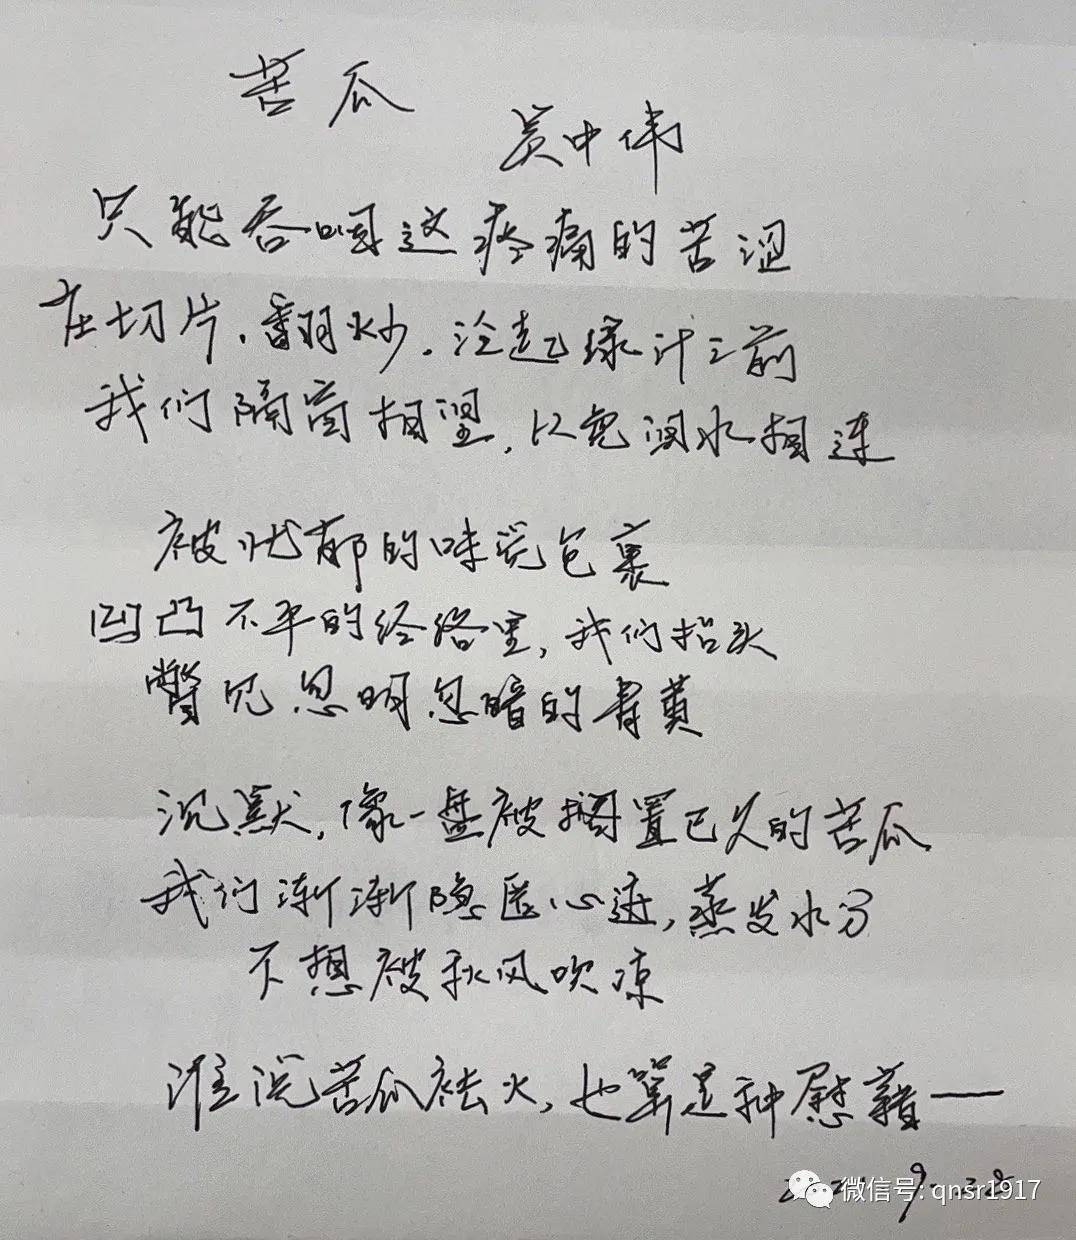 苦瓜
吴中伟
只能吞咽这疼痛的苦涩
在切片、翻炒、泠起绿汁之前
我们隔窗相望，以免泪水相连
被忧郁的味觉包裹
凹凸不平的经络里，我们抬头
瞥见忽明忽暗的青黄
沉默，像一盘被搁置已久的苦瓜
我们渐渐隐匿心迹，蒸发水分
不想被秋风吹凉
谁说苦瓜祛火，也算是种慰藉——
微信号: qnsr1917